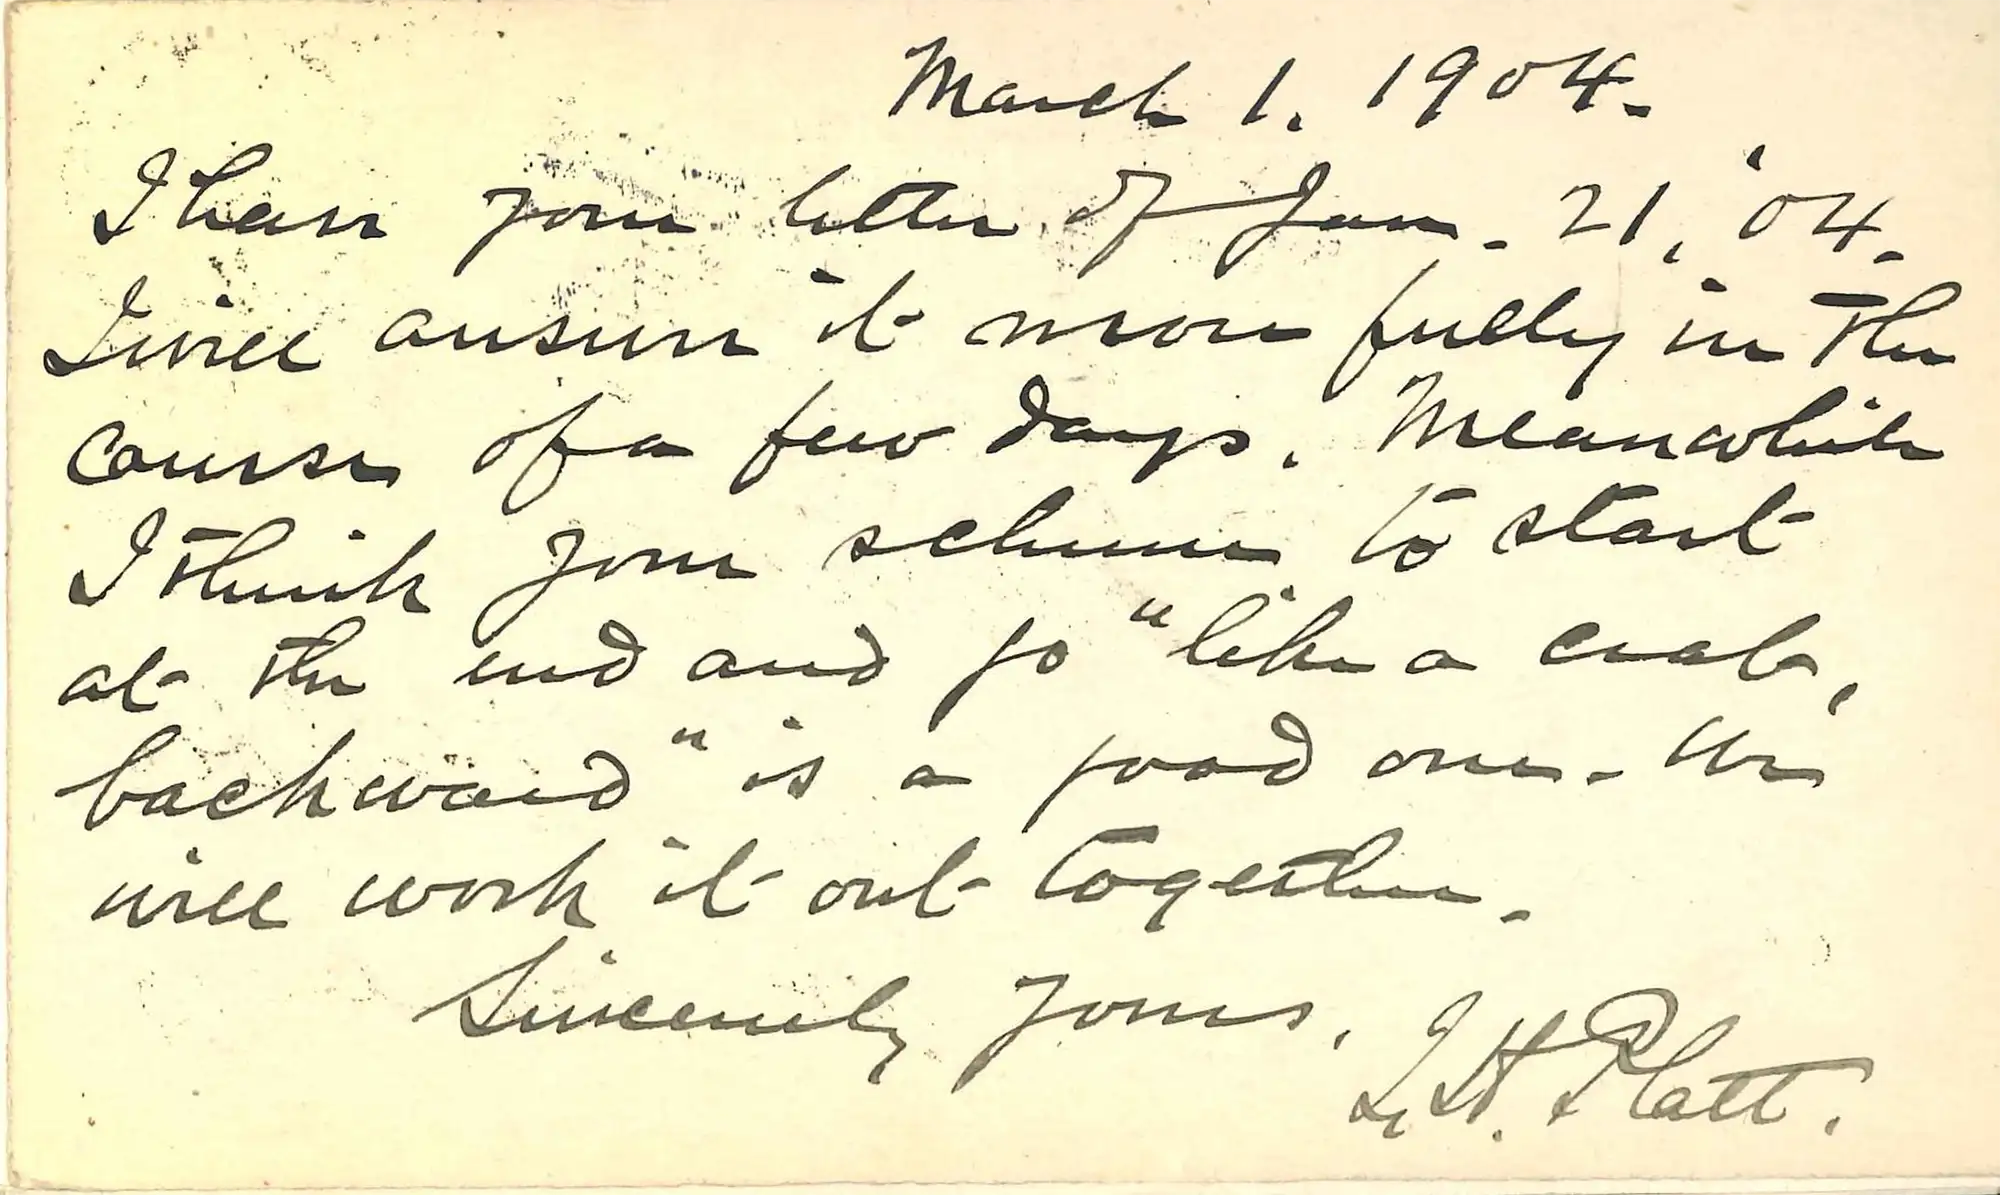 March 1, 1904.
I have your letter of Jan. 21, '04.
I will answer it more fully in the
course of a few days. Meanwhile
I think your scheme to start
at the end and go "like a crab,
backward" is a good one. We
will work it out together.
Sincerely yours,
I. H. Platt.